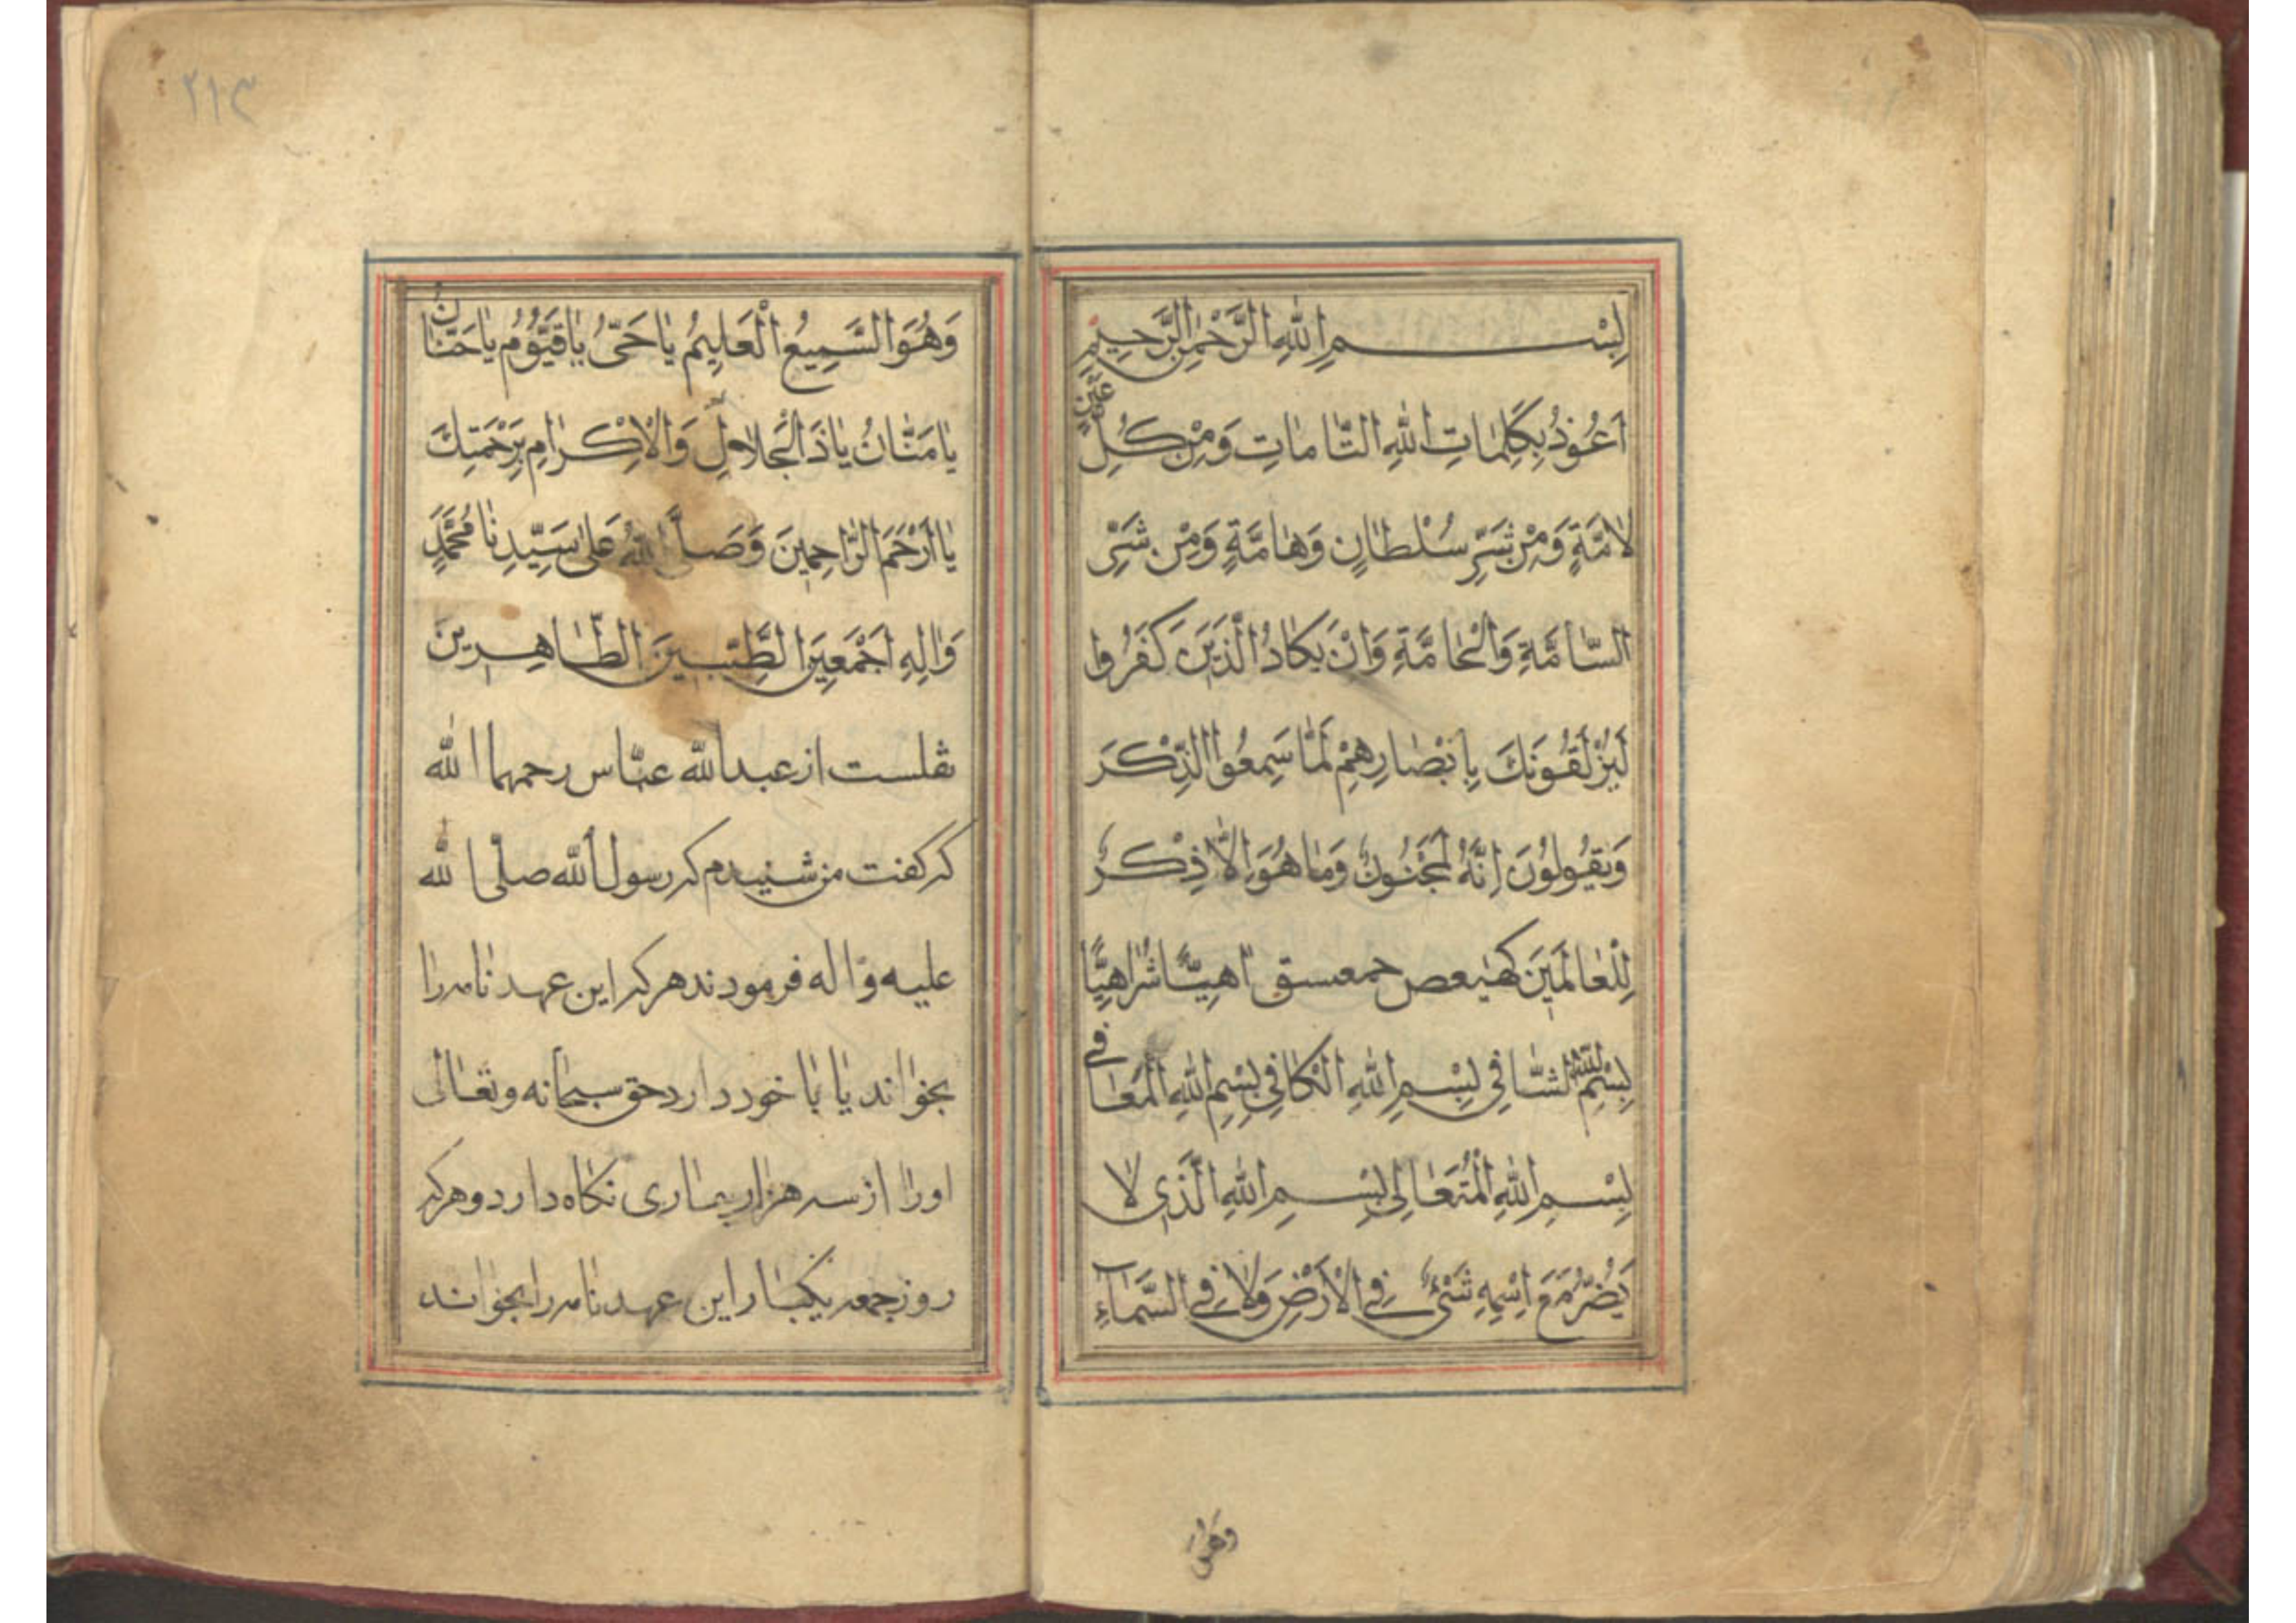 بِسْمِ اللهِ الرَّحْمٰنِ الرَّحِيمِ
اَعُوذُ بِكَلِمٰاتِ اللهِ التّٰامٰاتِ وَمِنْ كُلِّ عَيْنٍ
لٰامَّةٍ وَمِنْ شَرِّ سُلْطٰانٍ وَهٰامَّةٍ وَمِنْ شَرِّ
السّٰامَّةِ وَالْحٰامَّةِ وَاِنْ يَكٰادُ الَّذِينَ كَفَرُوا
لَيُزْلِقُونَكَ بِاَبْصٰارِهِمْ لَمّٰا سَمِعُوا الذِّكْرَ
وَيَقُولُونَ اِنَّهُ لَمَجْنُونٌ وَمٰا هُوَ اِلّٰا ذِكْرٌ
لِلْعٰالَمِينَ كهيعص حمعسق اهِيًّا شَرٰاهِيًّا
بِسْمِ اللهِ الشّٰافِي بِسْمِ اللهِ الْكٰافِي بِسْمِ اللهِ الْمُعٰافِي
بِسْمِ اللهِ الْمُتَعٰالِي بِسْمِ اللهِ الَّذِي لٰا
يَضُرُّ مَعَ اِسْمِهِ شَيْءٌ فِي الْاَرْضِ وَلٰا فِي السَّمٰاءِ
وَهُوَ
٢١٣
وَهُوَ السَّمِيعُ الْعَلِيمُ يٰا حَيُّ يٰا قَيُّوُمُ يٰا حَنّٰانُ
يٰا مَنّٰانُ يٰا ذَا الْجَلاٰلِ وَالْاِكْرٰامِ بِرَحْمَتِكَ
يٰا اَرْحَمَ الرّٰاحِمِينَ وَصَلَّى اللهُ عَلىٰ سَيِّدِنٰا مُحَمَّدٍ
وَاٰلِهِ اَجْمَعِينَ الطَّيِّبِينَ الطّٰاهِرِينَ
نقلست از عبدالله عبّاس رحمهما الله
که کفت من شنیدم که رسول الله صلّی الله
علیه و اله فرمودند هر که این عهد نامه را
بخواند یا با خود دارد حق سبحانه وتعالی
اورا از سه هزار بیماری نکاه دارد و هر که
روز جمعه یکبار این عهد نامه را بخواند